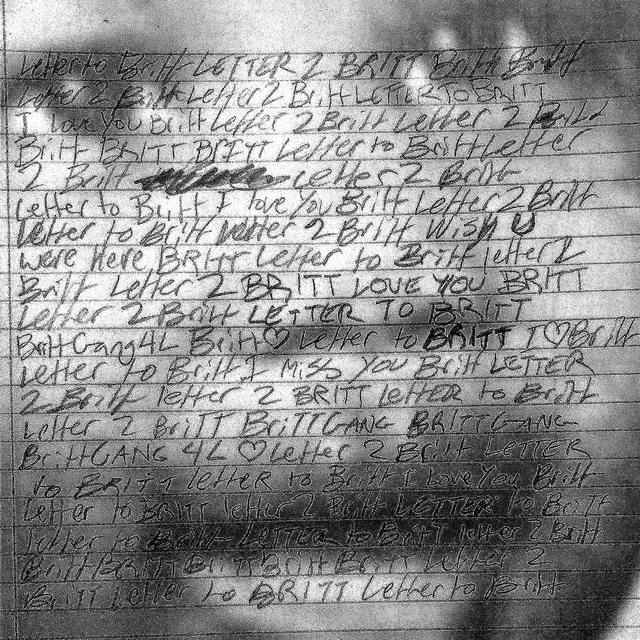 Letter to Britt LETTER 2 BRITT Britt Britt
Letter 2 Britt Letter 2 Britt LETTER TO BRITT
I Love You Britt Letter 2 Britt Letter 2
Britt BRITT BRITT Letter to Britt Letter
2 Britt Letter 2 Britt
Letter to Britt I love You Britt Letter 2 Britt
Letter to Britt letter 2 Britt Wish U
were Here BRITT Letter to Britt letter 2
Britt Letter 2 BRITT LOVE YOU BRITT
Letter 2 Britt LETTER TO BRITT
BrittGang4L Britt♡ Letter to BRITT I♡Britt
Letter to Britt I Miss You Britt LETTER
2 Britt letter 2 BRITT Letter to Britt
Letter 2 BriTT BriTTGANG BRITTGANG
BrittGANG 4L ♡ Letter 2 Britt LETTER
to BRITT letter to Britt I Love You Britt
Letter to BRITT letter 2 Britt LETTER to Britt
letter to Britt LETTER to BritT letter 2 Britt
Britt BRITT Britt Britt Britt Letter 2
Britt Letter to BRITT Letter to Britt